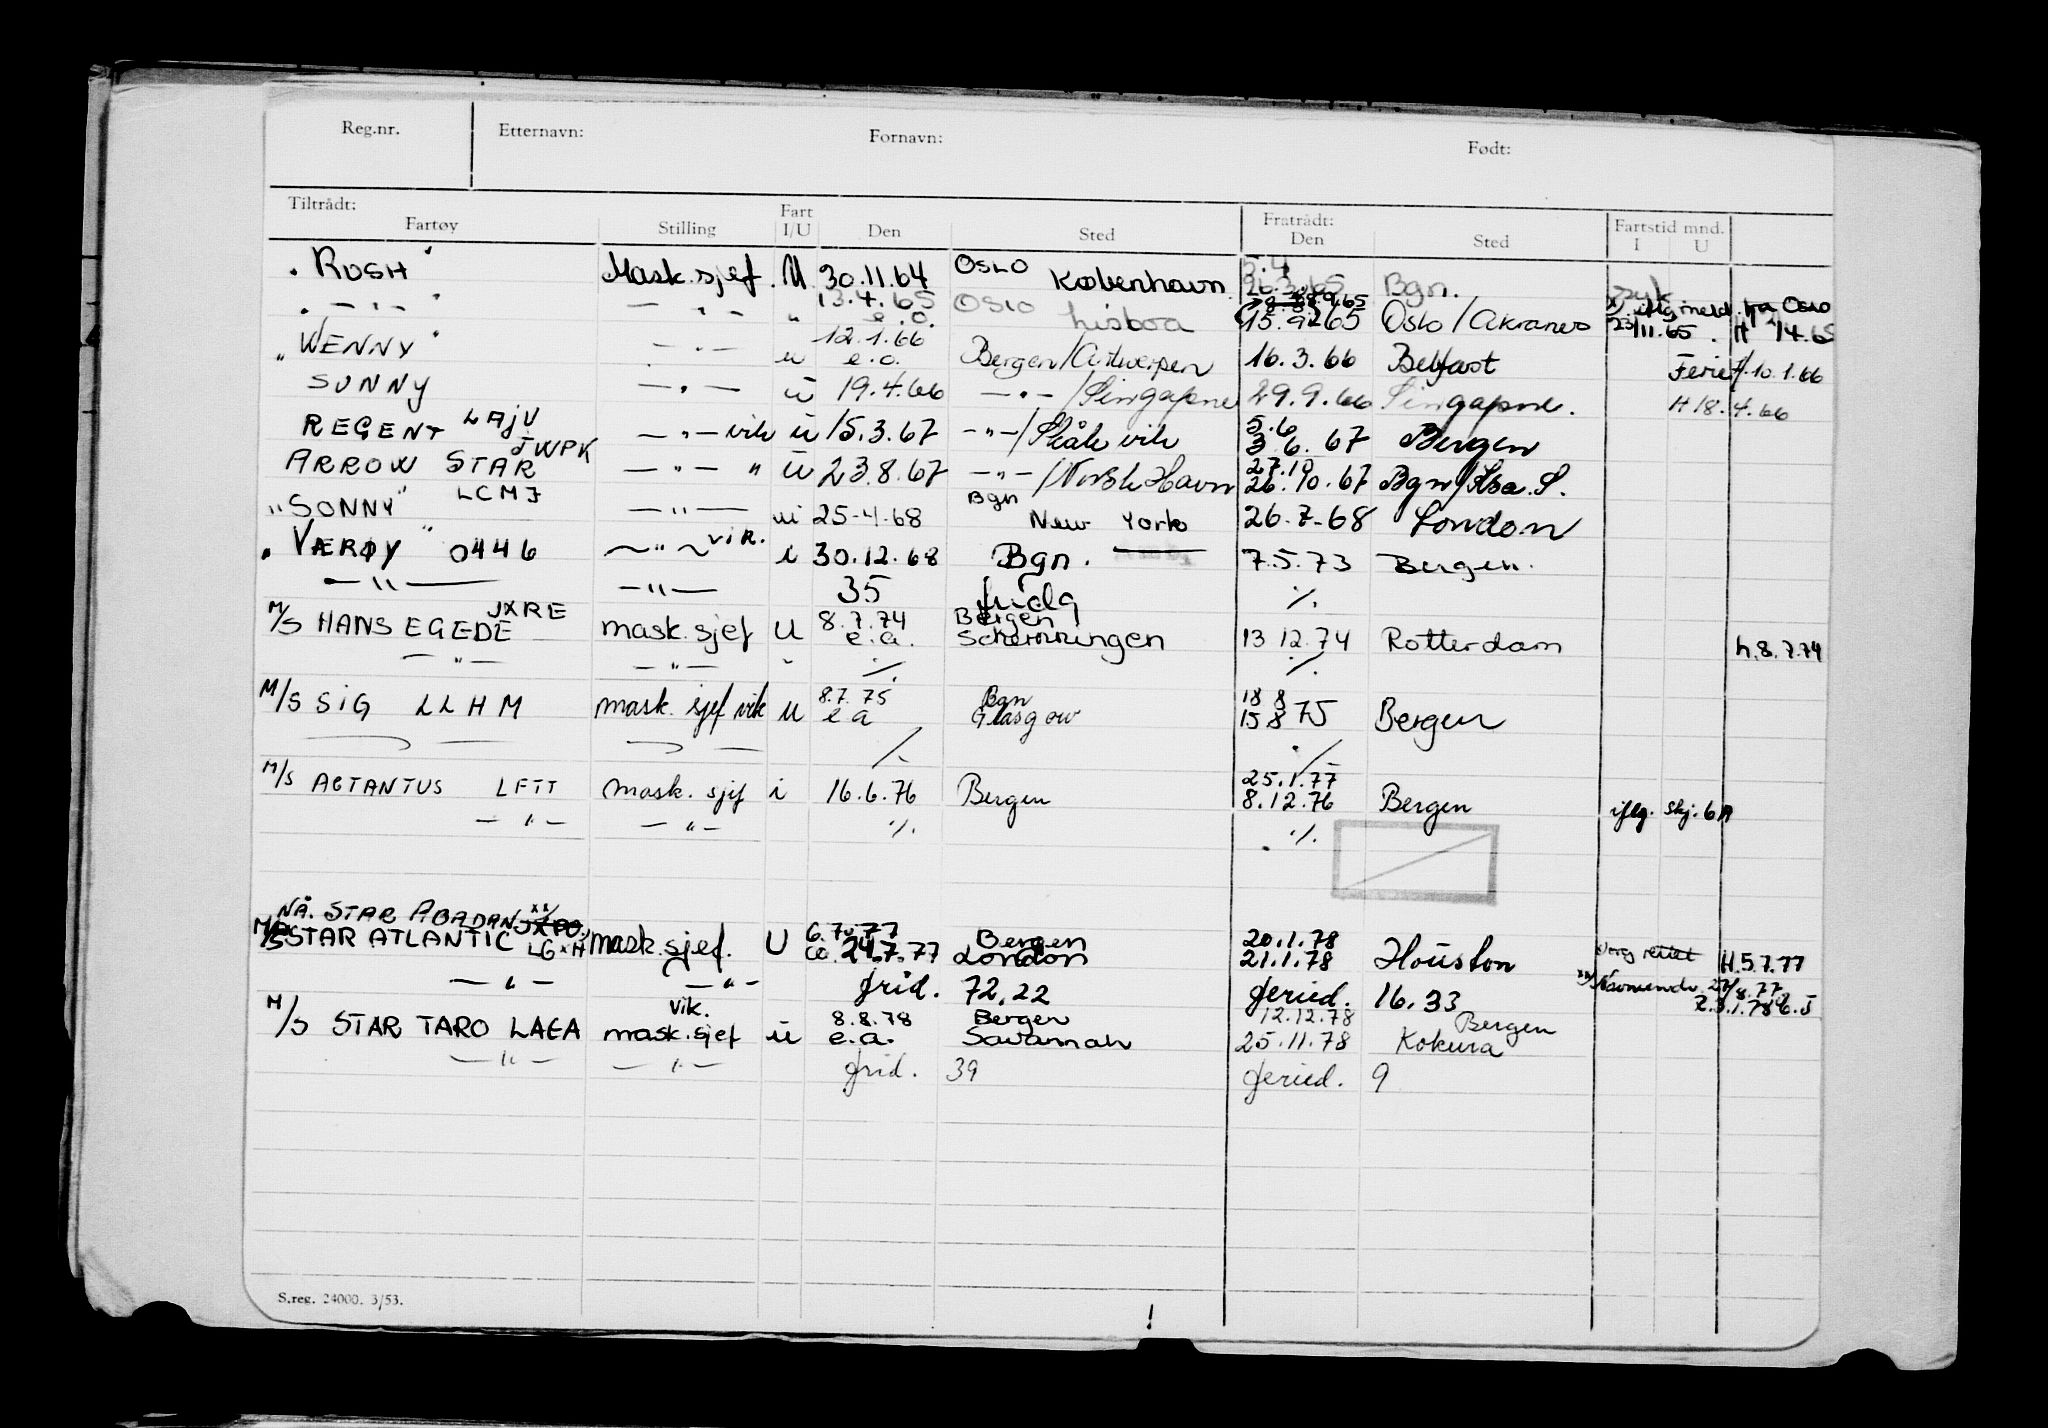 Reg.nr. Etternavn: Fornavn: Født:
Tiltrådt: Fartøy Stilling Fart I/U Den Sted Fratrådt: Den Sted Fartstid mnd. I U
"RUSH" Mask.sjef. U 30.11.64 OSLO København 26.3.65 Bgn. syk
— " — — " — " 13.4.65 e.o. OSLO Lisboa 15.9.65 Oslo/Akranes 23/11.65. fra Oslo H 2/4.65
"WENNY" — " — u 12.1.66 e.o. Bergen/Antwerpen 16.3.66 Belfast Ferie H. 10.1.66
SUNNY — " — u 19.4.66 — " — /Singapore 29.9.66 Singapore. H 18.4.66
REGENT LAJV — " — vik u 15.3.67 — " — /Skålevik 5.6 3.6.67 Bergen
ARROW STAR JWPK — " — " u 23.8.67 — " — /Norsk Havn 27.10 26.10.67 Bgn/
"SONNY" LCMJ — " — u 25-4.68 Bgn New York 26.7-68 London
"VÆRØY" 0446 — " — vik. i 30.12.68 Bgn. 7.5.73 Bergen.
— " — — " — 35 frida ./.
M/S HANS EGEDE JXRE mask.sjef U 8.7.74 e.a. Bergen Schevningen 13 12.74 Rotterdam h.8.7.74
— " — — " — " ./. ./.
M/S SIG LLHM mask. sjef vik u 8.7.75 e a Bgn Glasgow 18 8 15 8 75 Bergen
./. ./.
M/S ACTANTUS LFTT mask. sjef i 16.6.76 Bergen 25.1.77 8.12.76 Bergen iflg. skj. 6A
— " — — " — ./. ./.
NÅ. STAR ABADAN xx/ JXPO
M/S STAR ATLANTIC LGXH mask.sjef. U 6.7.77 24.7.77 Bergen London 20.1.78 21.1.78 Houston H.5.7.77
— " — — " — frid. 72,22 feried. 16.33 xx/ Navneendr. 27/8.77
M/S STAR TARO LAEA vik. mask.sjef u 8.8.78 e.a. Bergen Savannah 12.12.78 25.11.78 Bergen Kokura
— " — — " — frid. 39 feried. 9
S.reg. 24000. 3/53.